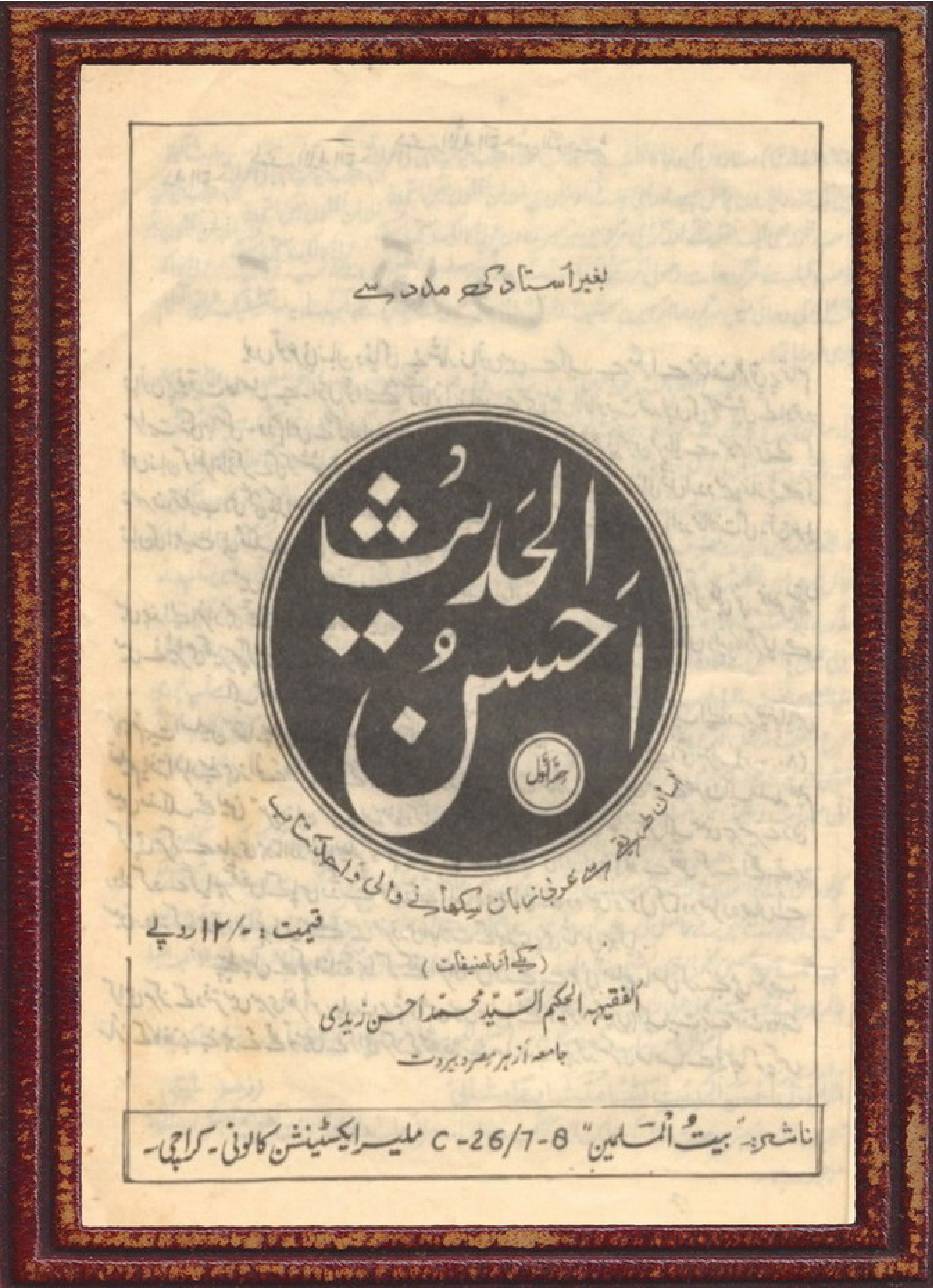 بغیر اُستاد کی مدد سے
احسنُ
الحَدیثُ
حصّہ اوّل
آسان طریقے سے عربی زبان سکھانے والی واحد کتاب
قیمت :-/۱۲ روپے
(یکے از تصنیفات)
الفقیہہ الحکیم السّیّد محمّد احسن زیدی
جامعہ ازہر مصر و بیروت
ناشر:۔ "بیتُ المسلمین" C-26/7-8 ملیر ایکسٹینشن کالونی۔ کراچی۔